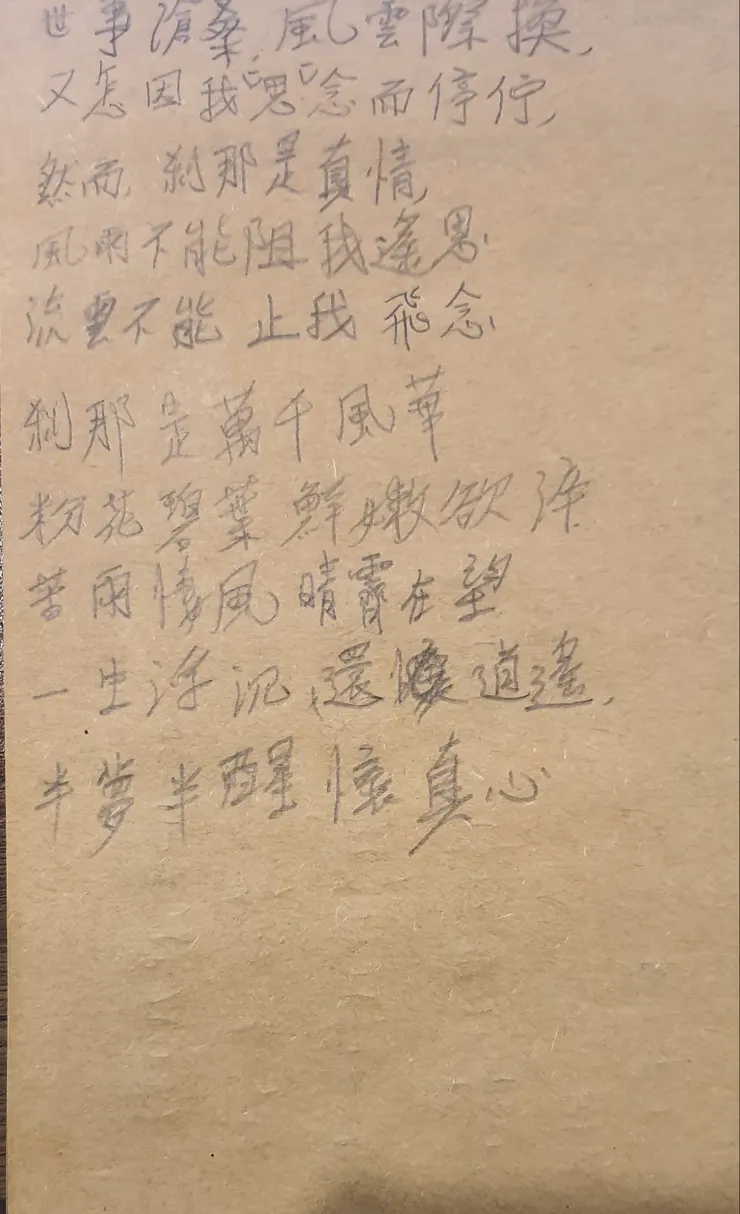 世事滄桑，風雲際換，
又怎因我「思」「念」而停佇，
然而，剎那是真情，
風雨不能阻我遙思
流雲不能止我飛念
剎那是萬千風華
粉花碧葉鮮嫩欲
苦雨悽風晴霽在望
一生浮沉，還逍遙，
半夢半醒懷真心